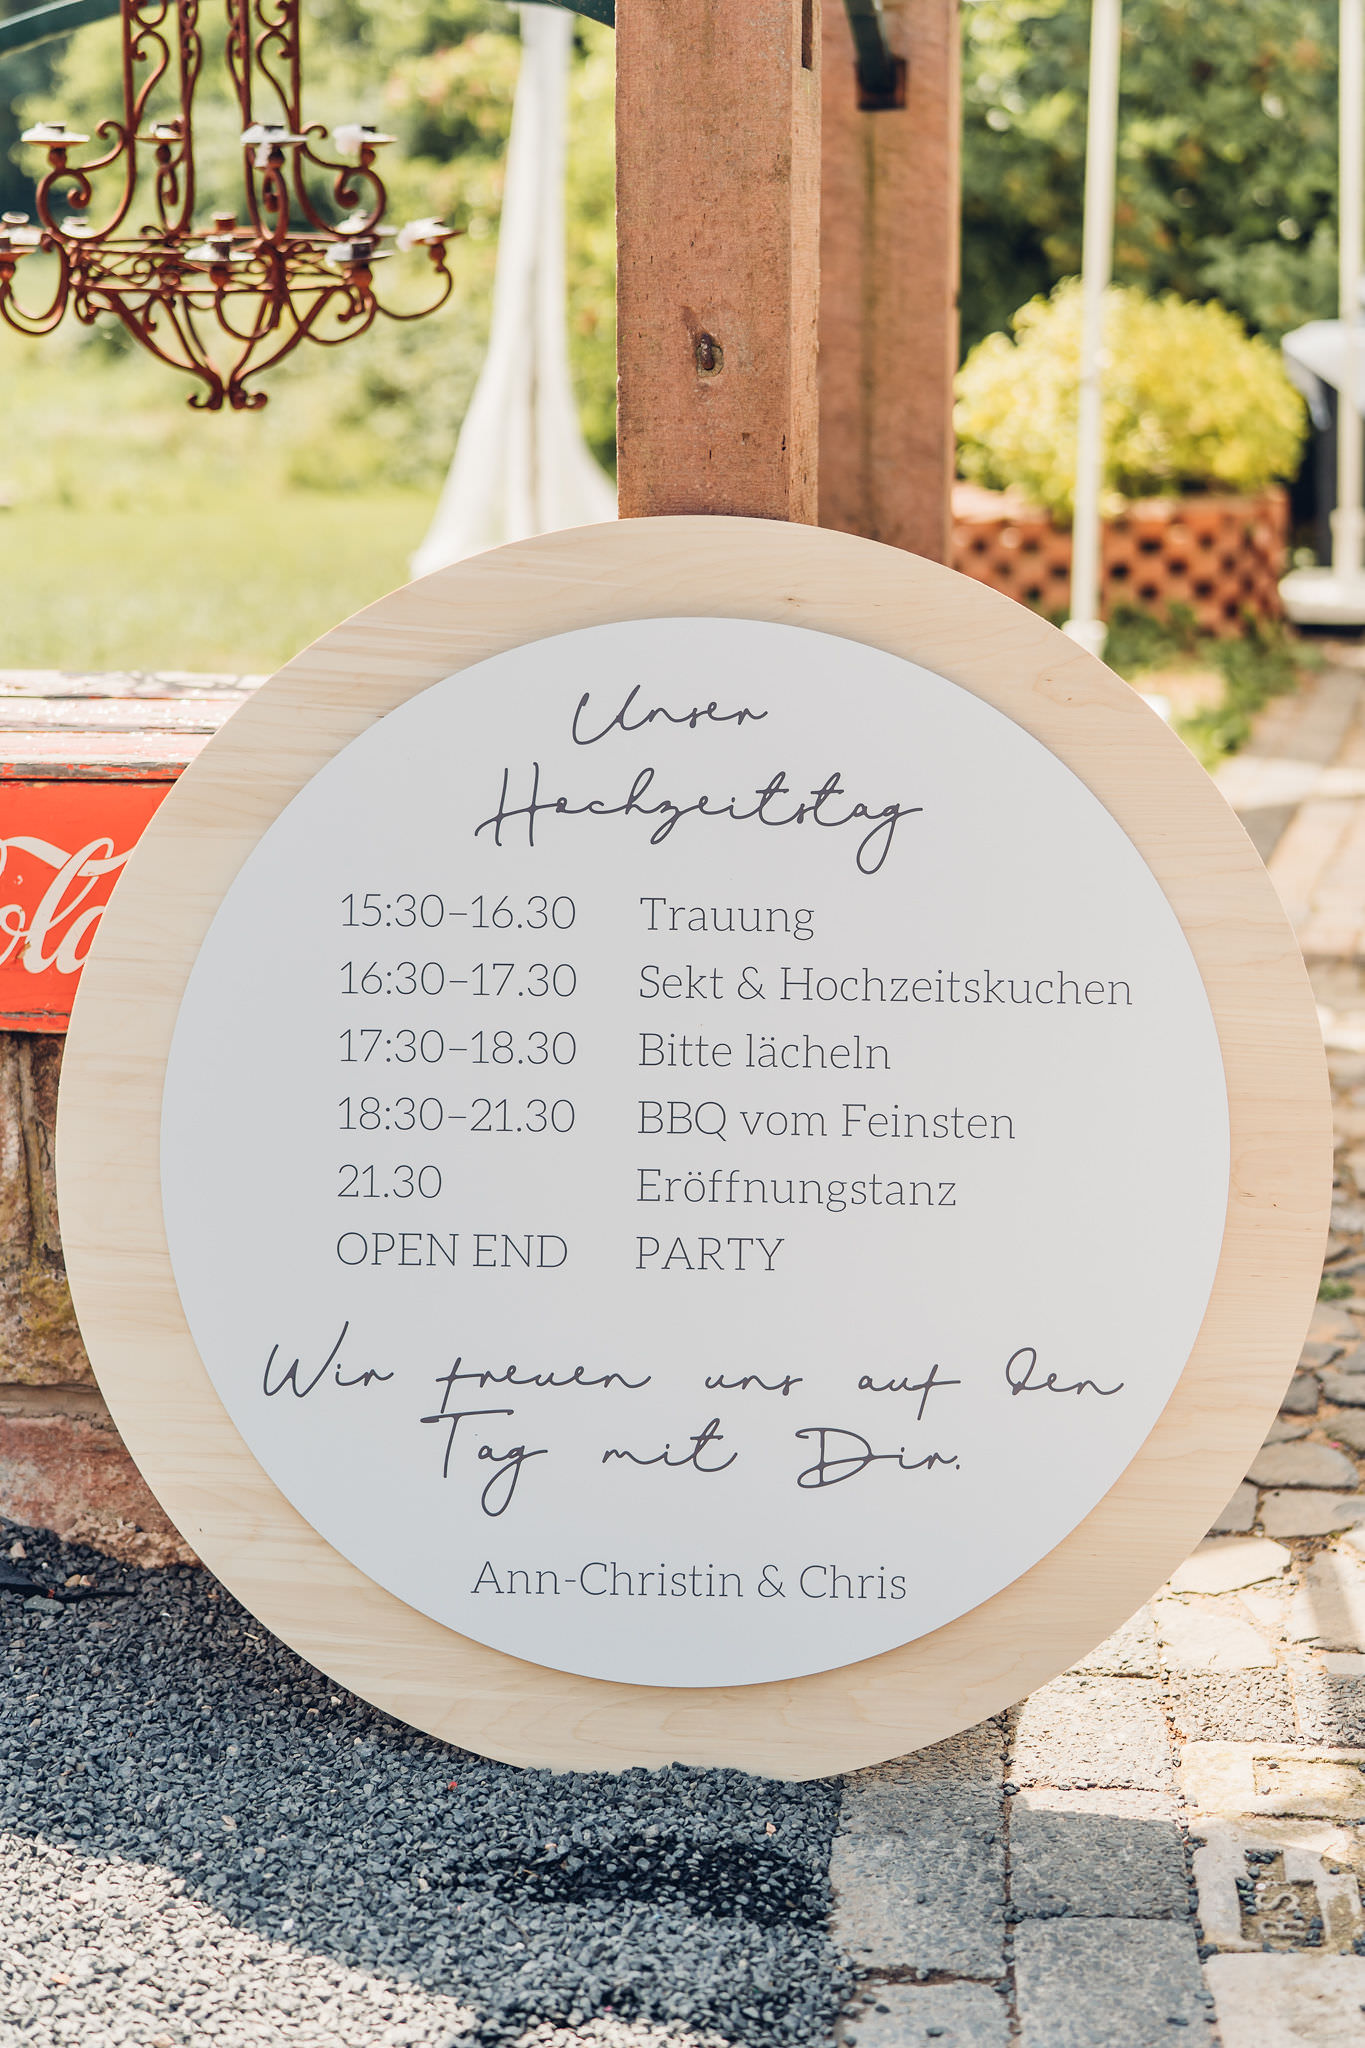 Unser
Hochzeitstag
15:30–16.30 Trauung
16:30–17.30 Sekt & Hochzeitskuchen
17:30–18.30 Bitte lächeln
18:30–21.30 BBQ vom Feinsten
21.30 Eröffnungstanz
OPEN END PARTY
Wir freuen uns auf den
Tag mit Dir.
Ann-Christin & Chris